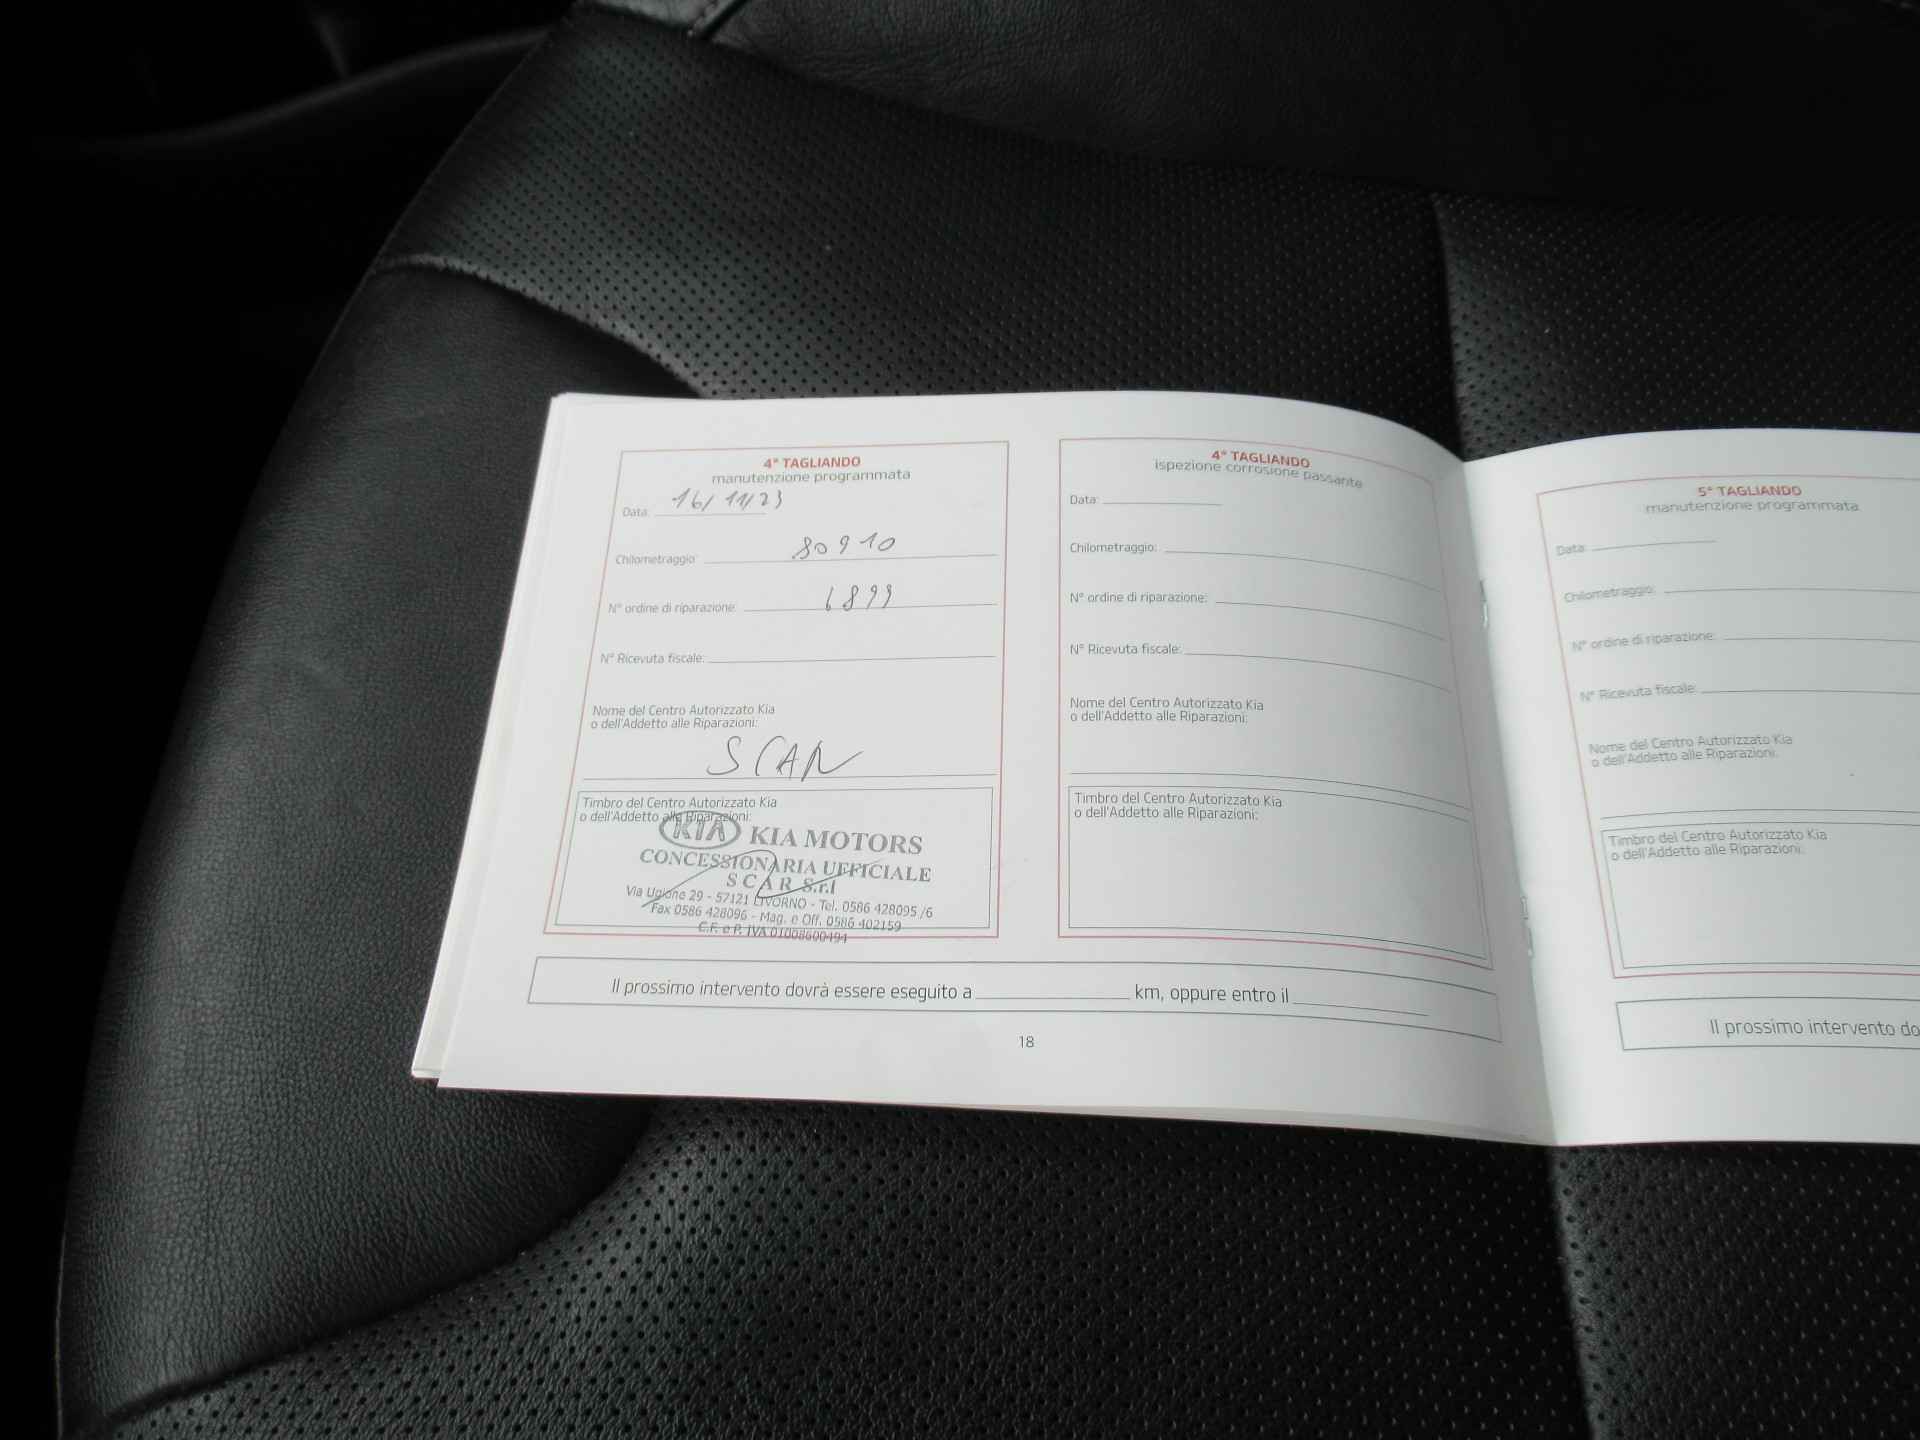 4° TAGLIANDO
manutenzione programmata
Data: 16/11/23
Chilometraggio: 80910
N° ordine di riparazione: 6899
N° Ricevuta fiscale:
Nome del Centro Autorizzato Kia
o dell'Addetto alle Riparazioni:
SCAR
Timbro del Centro Autorizzato Kia
o dell'Addetto alle Riparazioni:
KIA KIA MOTORS
CONCESSIONARIA UFFICIALE
SCAR S.r.l
Via Ugione 29 - 57121 LIVORNO - Tel. 0586 428095 /6
Fax 0586 428096 - Mag. e Off. 0586 402159
C.F. e P. IVA 01008600494
4° TAGLIANDO
ispezione corrosione passante
Data:
Chilometraggio:
N° ordine di riparazione:
N° Ricevuta fiscale:
Nome del Centro Autorizzato Kia
o dell'Addetto alle Riparazioni:
Timbro del Centro Autorizzato Kia
o dell'Addetto alle Riparazioni:
Il prossimo intervento dovrà essere eseguito a km, oppure entro il
18
5° TAGLIANDO
manutenzione programmata
Data:
Chilometraggio:
N° ordine di riparazione:
N° Ricevuta fiscale:
Nome del Centro Autorizzato Kia
o dell'Addetto alle Riparazioni:
Timbro del Centro Autorizzato Kia
o dell'Addetto alle Riparazioni:
Il prossimo intervento do